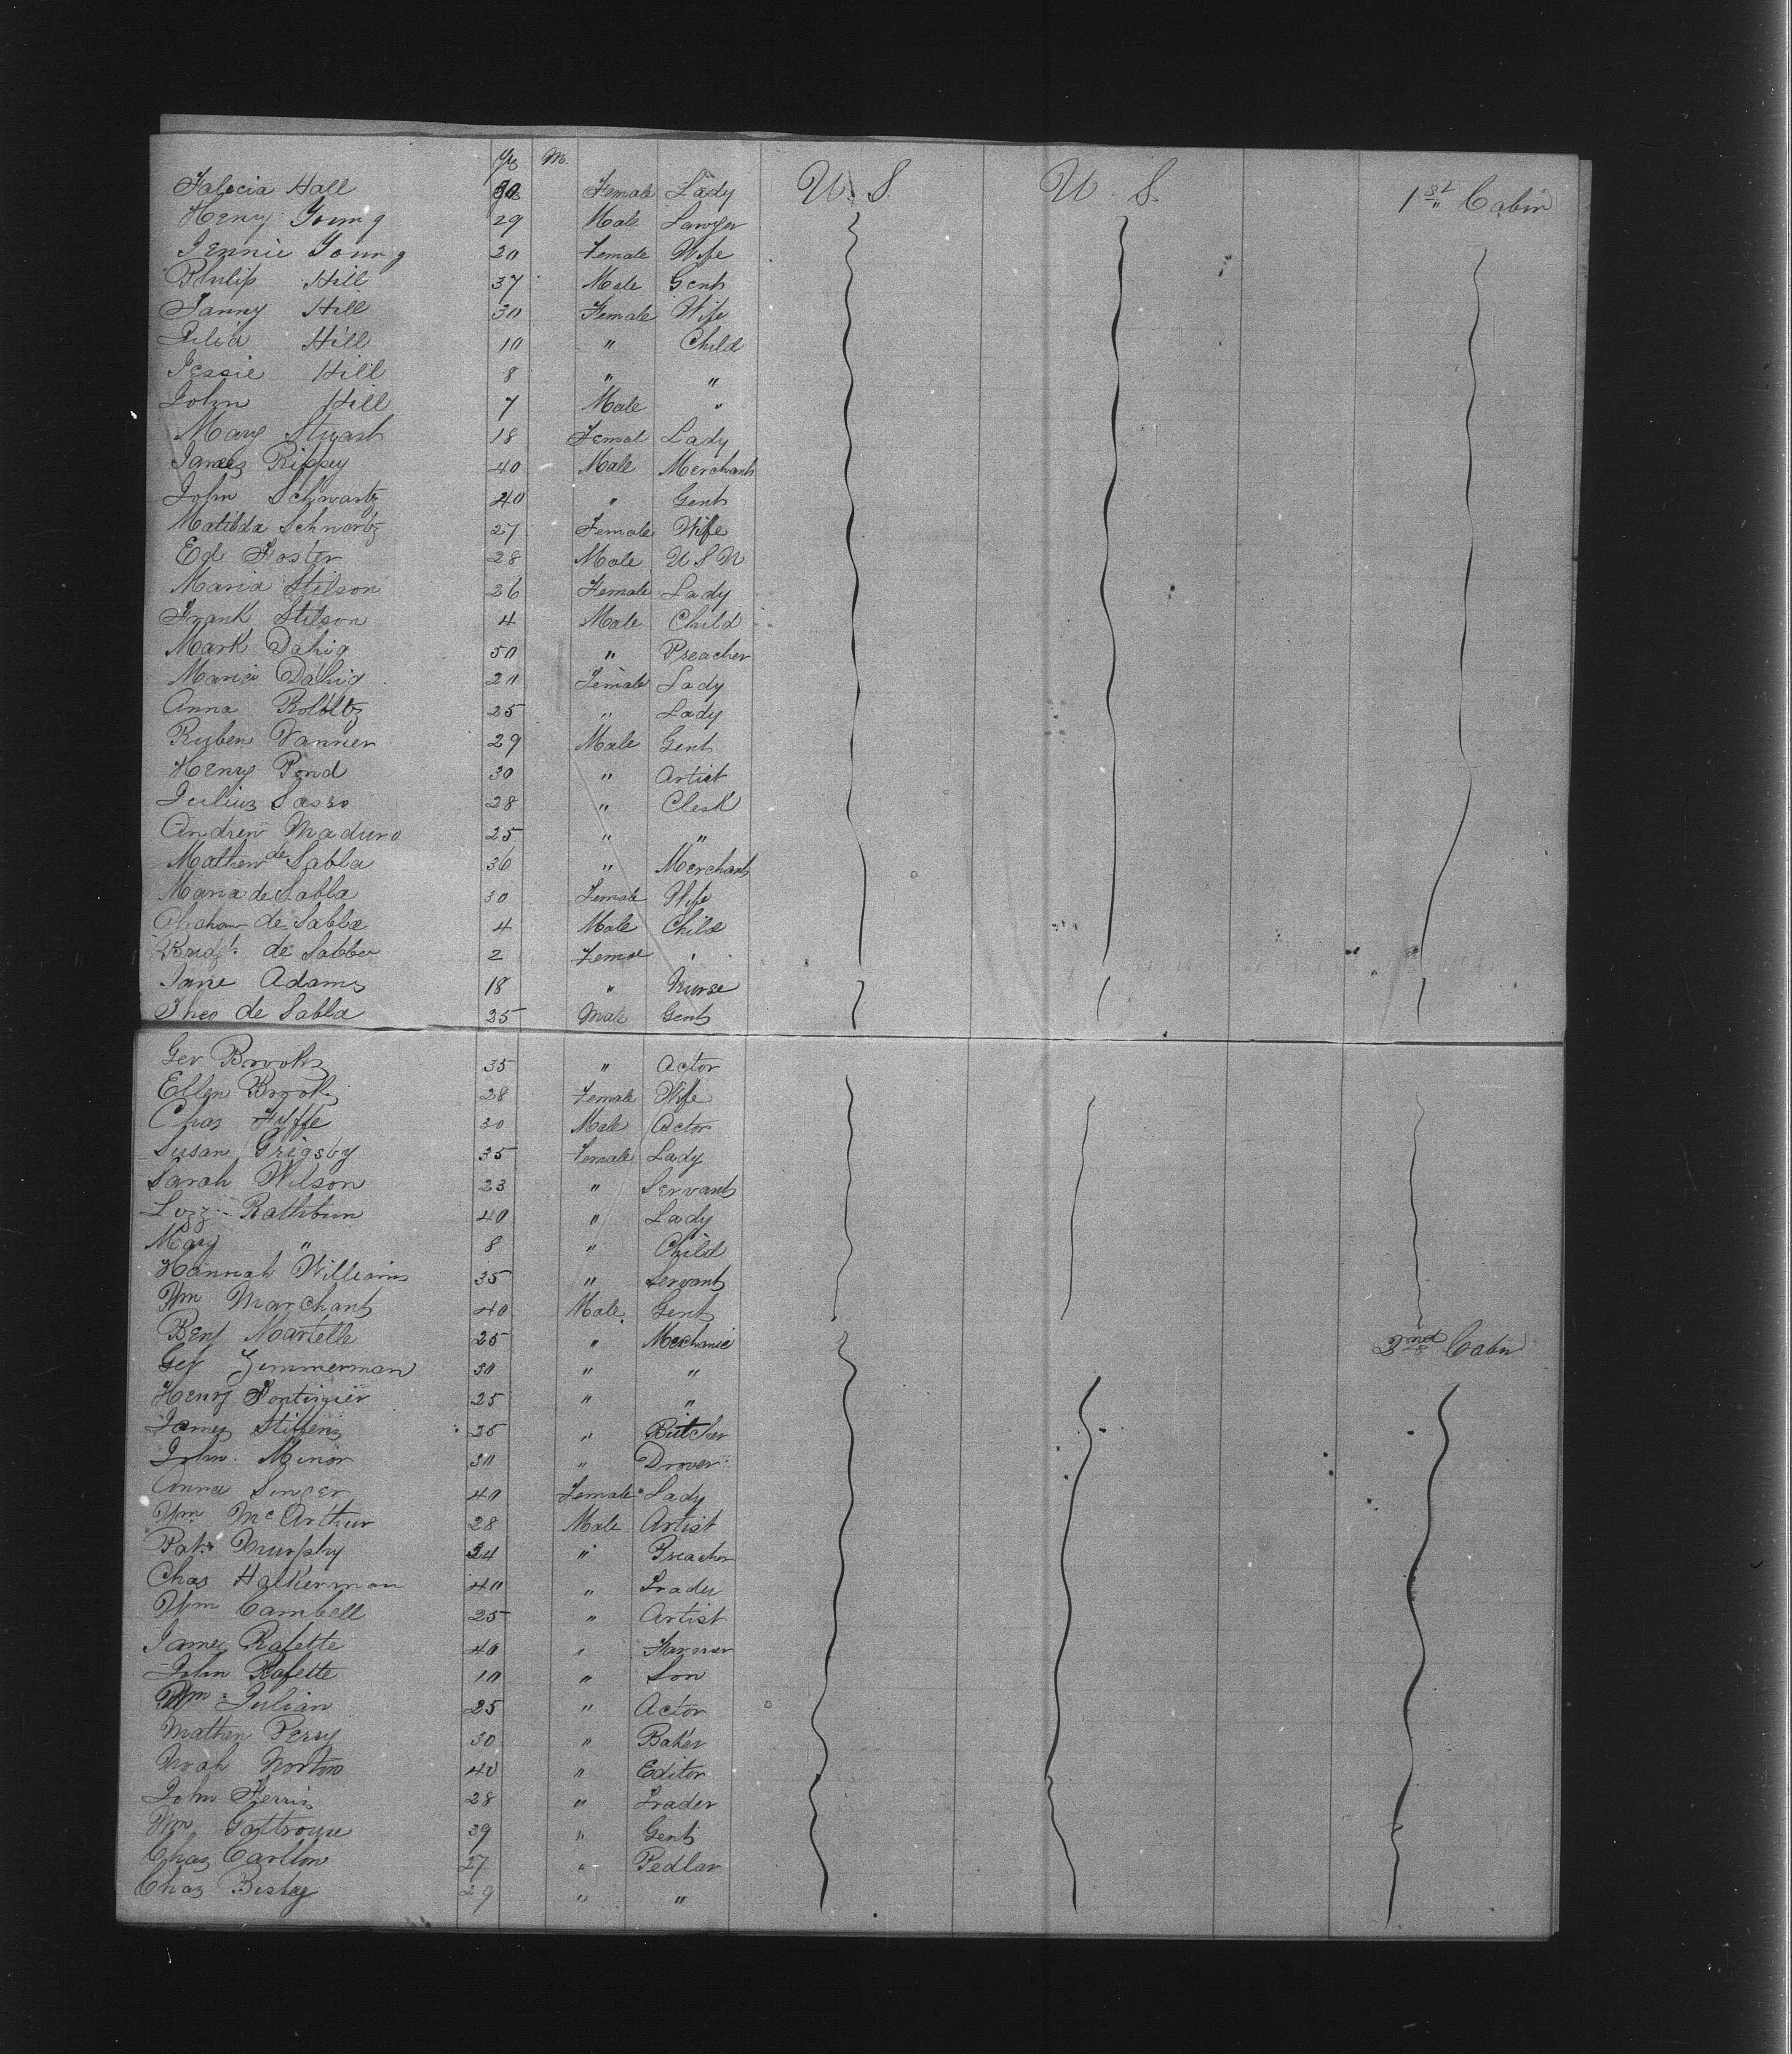 Yrs M.
Falecia Hall Female Lady U. S. U. S. 1st Cabin
Henry Young 29 Male Lawyer
Jennie Young 20 Female Wife
Philip Hill 37 Male Gent
Fanny Hill 30 Female Wife
Hill 10 " Child
Jessie Hill 8 " "
John Hill 7 Male "
Mary Stuart 18 Femal Lady
James Rippey 40 Male Merchant
John Schwartz 40 " Gent
Matilda Schwartz 27 Female Wife
Ed Foster 28 Male U S N
Maria Stilson 26 Female Lady
Frank Stilson 4 Male Child
Mark Dahig 50 " Preacher
Maria Dahig 20 Female Lady
Anna 25 " Lady
Ruben Vanner 29 Male Gent
Henry Pond 30 " Artist
Julius Sasso 28 " Clerk
Andrew Maduro 25 " "
Mathew de Sabla 36 " Merchant
Maria de Sabla 30 Female Wife
Abraham de Sabla 4 Male Child
Bridgt. de Sabla 2 Femae "
Jane Adams 18 " Nurse
Theo de Sabla 25 Male Gent
Geo Brooks 35 " Actor
Ellen Brooks 28 Female Wife
Chas Fyffe 30 Male Actor
Susan Grigsby 35 Female Lady
Sarah Wilson 23 " Servant
Rathbun 40 " Lady
Mary " 8 " Child
Hannah Williams 35 " Servant
Wm Marchant 40 Male Gent
Benj Martelle 25 " Mechanic 2nd Cabin
Geo Zimmerman 30 " "
Henry Fontinier 25 " "
James Stiffens 25 " Butcher
John Minor 30 " Drover
Anna Singer 40 Female Lady
Wm McArthur 28 Male Artist
Patk Murphy 24 " Preacher
Chas Halkerman 40 " Trader
Wm Cambell 25 " Artist
James Rafette 40 " Farmer
John Rafette 10 " Son
Wm Julian 25 " Actor
Mathew Perry 30 " Baker
Noah Norton 40 " Editor
John Ferris 28 " Trader
Wm 39 " Gent
Chas Carlton 27 " Pedlar
Chas Bisby 29 " "